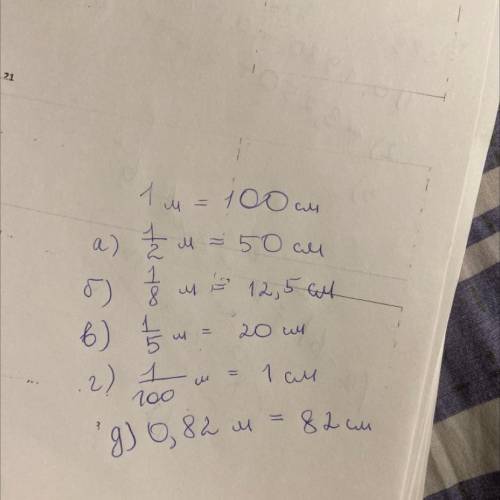 21
1 м = 100 см
а) 1/2 м = 50 см
б) 1/8 м = 12,5 см
в) 1/5 м = 20 см
г) 1/100 м = 1 см
д) 0,82 м = 82 см